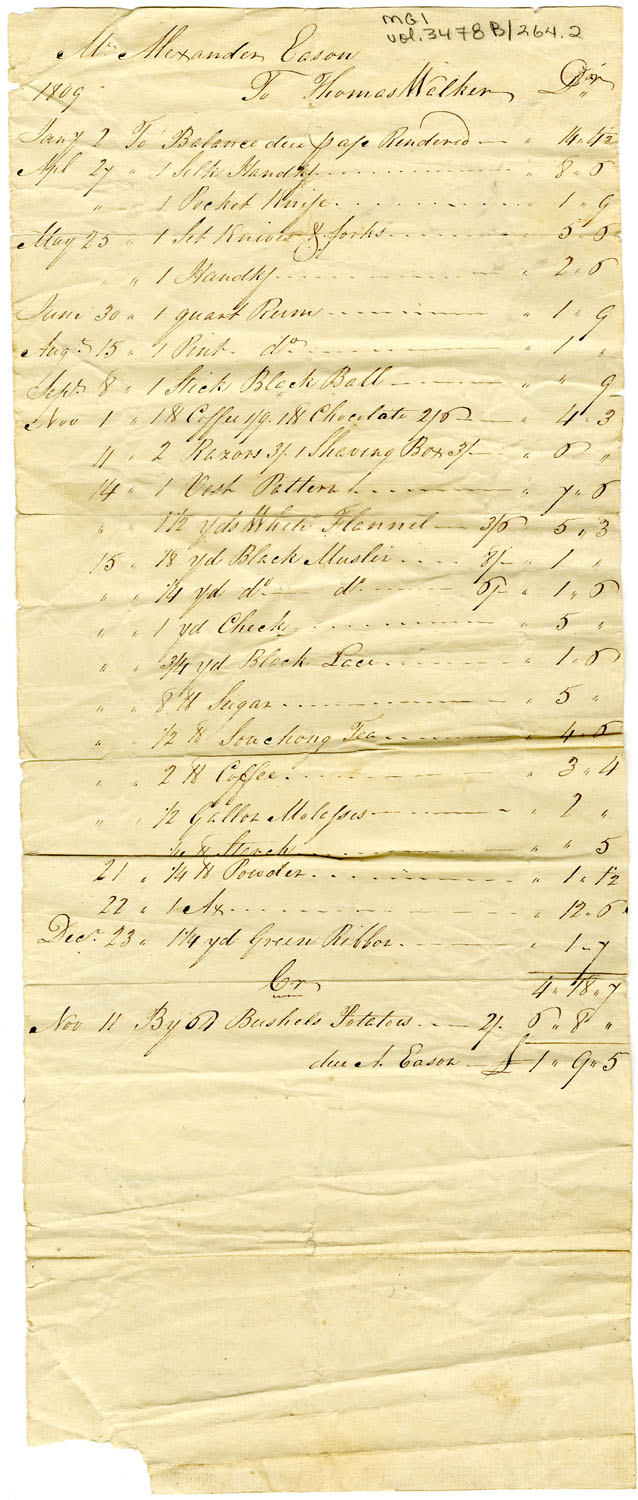 MG1
vol. 3478 B/264.2
Mr Alexander Eason
1809 To Thomas Walker Dr
Jany 2 To Balance due p a/c Rendered — " 14 " 4½
Apl 27 " 1 Silk Handkf " 8 " 6
" – 1 Pocket Knife " 1 " 9
May 25 " 1 Set Knives & forks " 5 " 6
" " 1 Handkf " 2 " 6
June 30 " 1 quart Rum " 1 " 9
Augt 15 " 1 Pint do " 1 "
Sept 8 " 1 Stick Black Ball " " 9
Nov 1 " 1 lb Coffee 1/9. 1 lb Chocolate 2/6 " 4 " 3
11 " 2 Razors 3/. 1 Shaving Box 3/ " 6 "
14 " 1 Vest Pattern " 7 " 6
" " 1½ yds White Flannel 3/6 5 " 3
15 " ⅛ yd Black Muslin 8/ " 1 "
" " ¼ yd do do 6/ " 1 " 6
" " 1 yd Check " 5 "
" " 3/4 yd Black Lace " 1 " 6
" " 8 lb Sugar " 5 "
" " ½ lb Souchong Tea 4 " 6
" " 2 lb Coffee " 3 " 4
" " ½ Gallon Molasses " 2 "
lb Starch " " 5
21 " ¼ lb Powder " 1 " 1½
22 " 1 Ax " 12 " 6
Decr 23 " 1¼ yd Green Ribbon " 1 – 7
Cr 4 " 18 " 7
Nov 11 By Bushels Potatoes 2/. 6 " 8 "
due A. Eason £ 1 " 9 " 5